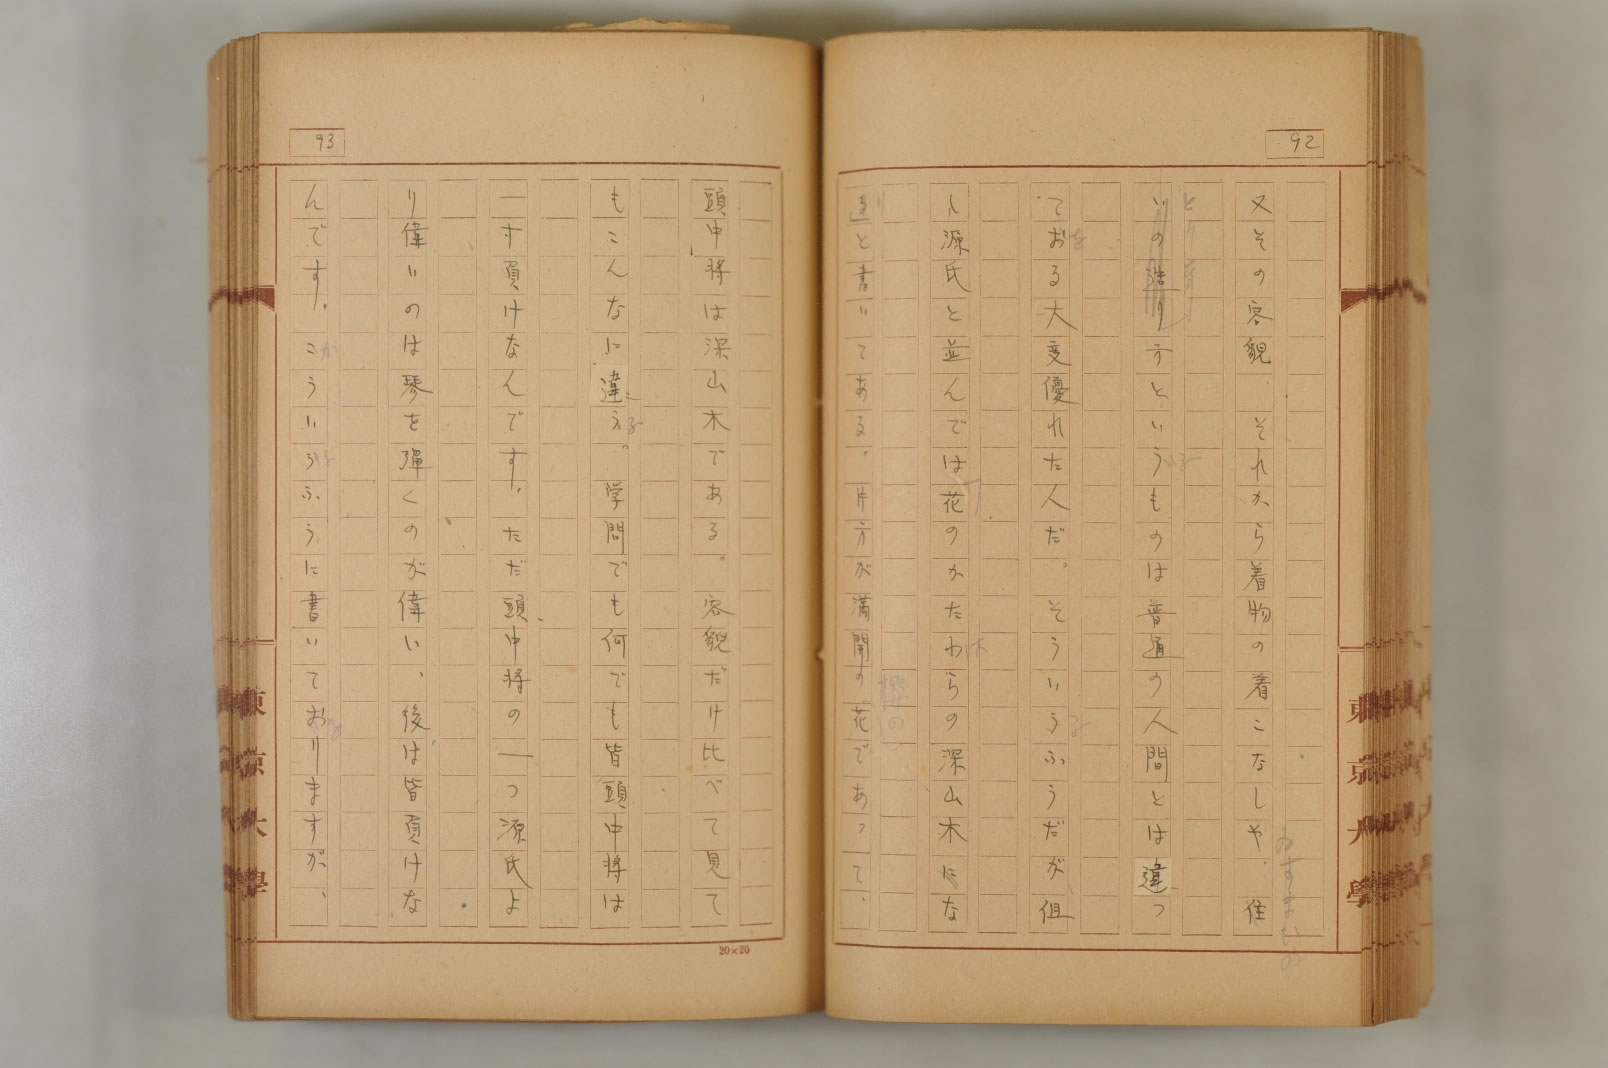 92
又その容貌　それから着物の着こなしや、住
いの造り方というものは普通の人間とは違つ
ておる大変優れた人だ。そういうふうだが、但
し源氏と並んでは花のかたわらの深山木にな
ると書いてある。片方が満開の花であつて、
93
頭中将は深山木である。容貌だけ比べて見て
もこんなに違う。学問でも何でも皆頭中将は
一寸負けなんです。ただ頭中将の一つ源氏よ
り偉いのは琴を弾くのが偉い、後は皆負けな
んです。こういうふうに書いておりますが、
20×20
東京大學
東京大學